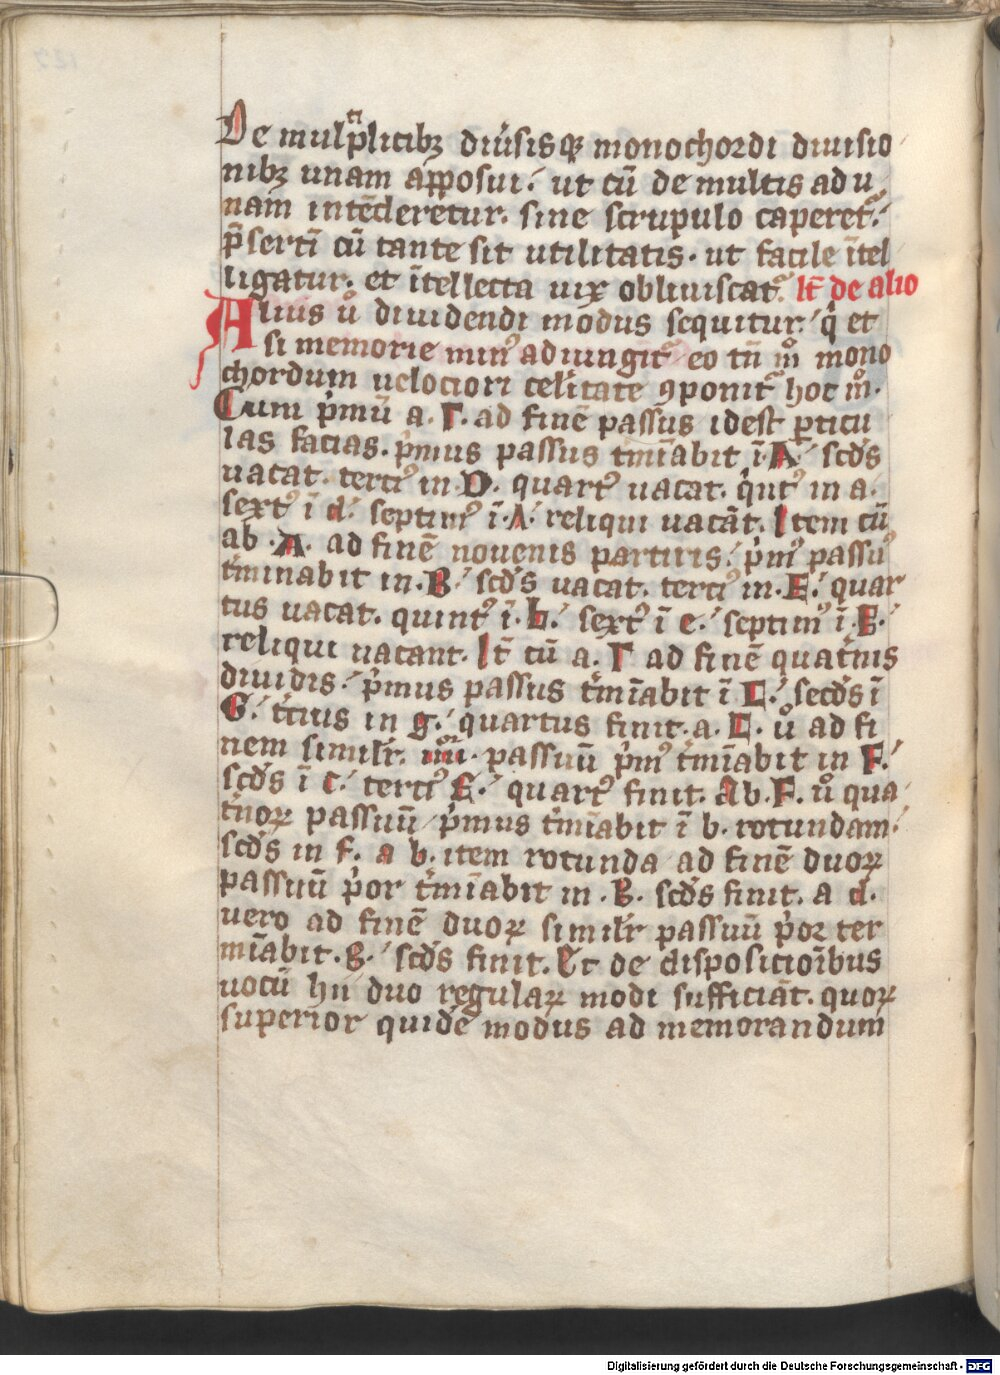 De mulp̄licibꝫ diu̾sisqꝫ monochordi diuisio
nibꝫ unam apposui. ut cū de multis ad u
nam intēderetur. sine scrupulo caperet᷑.
p̄sertī cū tante sit utilitatis. ut facile ītel
ligatur. et ītellecta uix obliuiscat᷑. It̄ de alio
Alius uͦ diuidendi modus sequitur. q̇ et
si memorie minꝰ adiungit᷑ eo tn̄ mͦ mono
chordum uelociori celi̾tate ꝯponit᷑ hoc mͦ.
Cum p̍mū a. Γ. ad finē passus idest ꝑticu
las facias. p̍mus passus t̾mīabit ī. A. scd̾s
uacat. terciꝰ in D. quartꝰ uacat. q̍ntꝰ in a.
sextꝰ ī d. septimꝰ ī. A. reliqui uacāt. Item cū
ab. A. ad finē nouenis partiris. p̍mꝰ passuꝰ
t̾minabit in. B. scd̾s uacat. terciꝰ in. E. quar
tus uacat. quintꝰ ī. b. sextꝰ ī e. septimꝰ ī. E.
reliqui uacant. It̄ cū a. Γ ad finē quat̾nis
diuidis. p̍mus passus t̾mīabit ī C. secd̾s ī
G. t̾cius in g. quartus finit. a. C. uͦ ad fi
nem simili̾r. iiii. passuū p̍mꝰ t̾mīabit in F.
scd̾s ī c. terciꝰ E. quartꝰ finit. Ab. F. uͦ qua
t̾noꝝ passuū p̍mus t̾mīabit ī b. rotundam.
scd̾s in f. a b. item rotunda ad finē duoꝝ
passuū p̍or t̾mīabit in. B. scd̾s finit. a d.
uero ad finē duoꝝ simili̾r passuū p̍or ter
mīabit. g. scd̾s finit. Et de disposicioībus
uocū hii duo regulaꝝ modi sufficiāt. quoꝝ
superior quidē modus ad memorandum
Digitalisierung gefördert durch die Deutsche Forschungsgemeinschaft - DFG